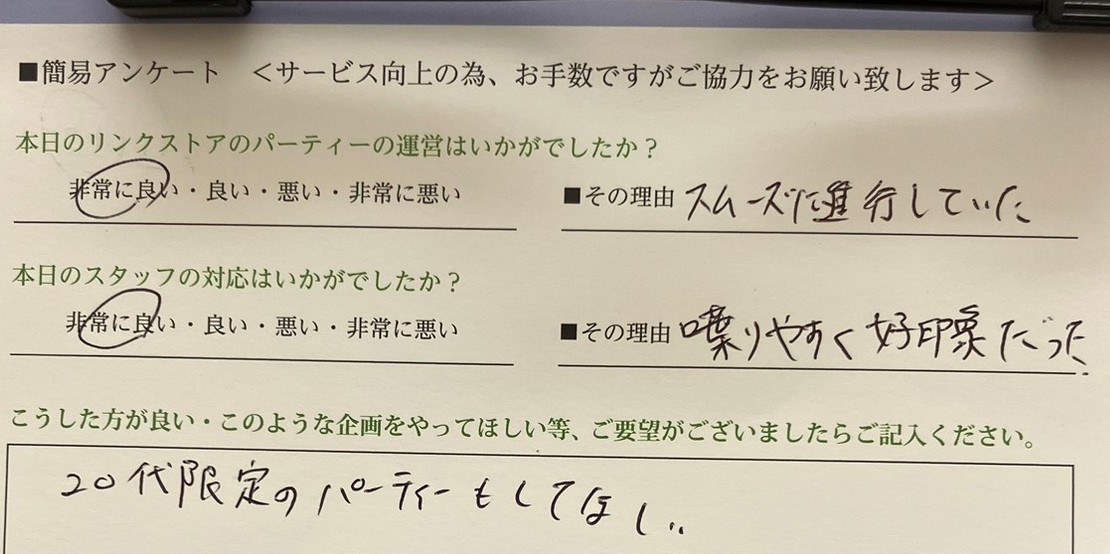 ■簡易アンケート ＜サービス向上の為、お手数ですがご協力をお願い致します＞
本日のリンクストアのパーティーの運営はいかがでしたか？
非常に良い・良い・悪い・非常に悪い ■その理由 スムーズに進行していた
本日のスタッフの対応はいかがでしたか？
非常に良い・良い・悪い・非常に悪い ■その理由 喋りやすく好印象だった.
こうした方が良い・このような企画をやってほしい等、ご要望がございましたらご記入ください。
20代限定のパーティーもしてほしい